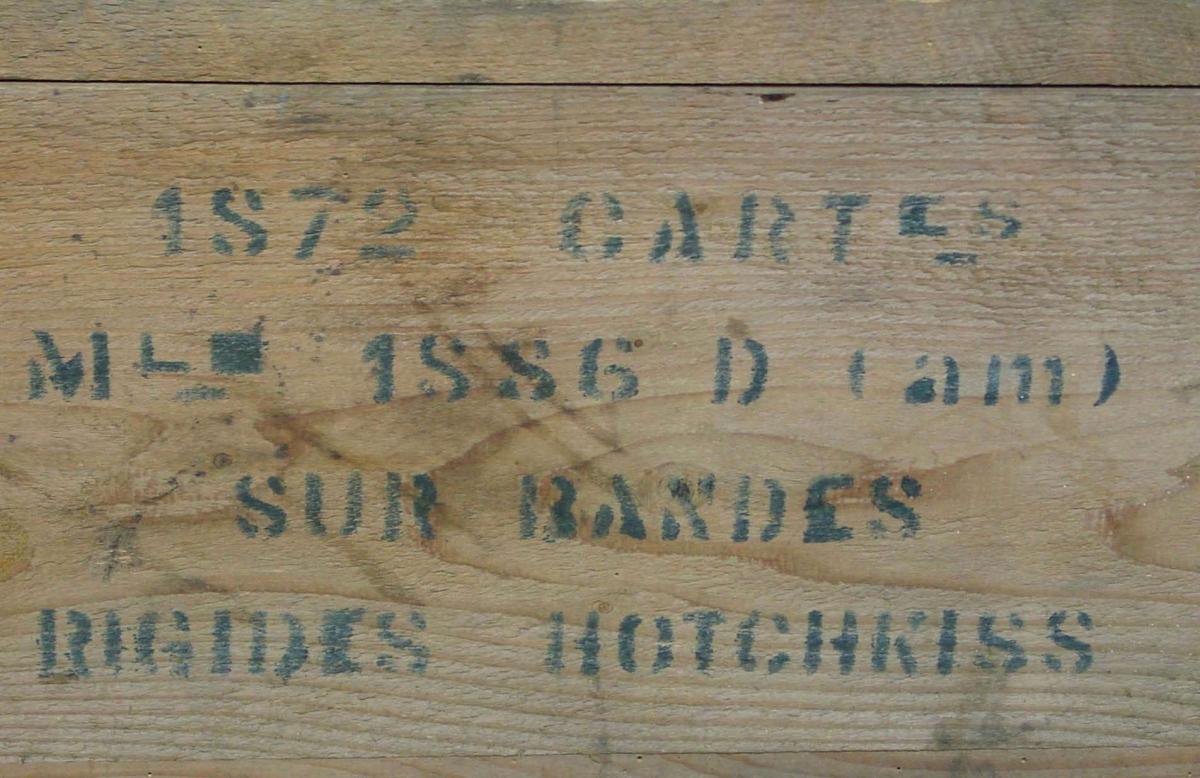 1872 CARTES
MLE 1886 D (am)
SUR BANDES
RIGIDES HOTCHKISS